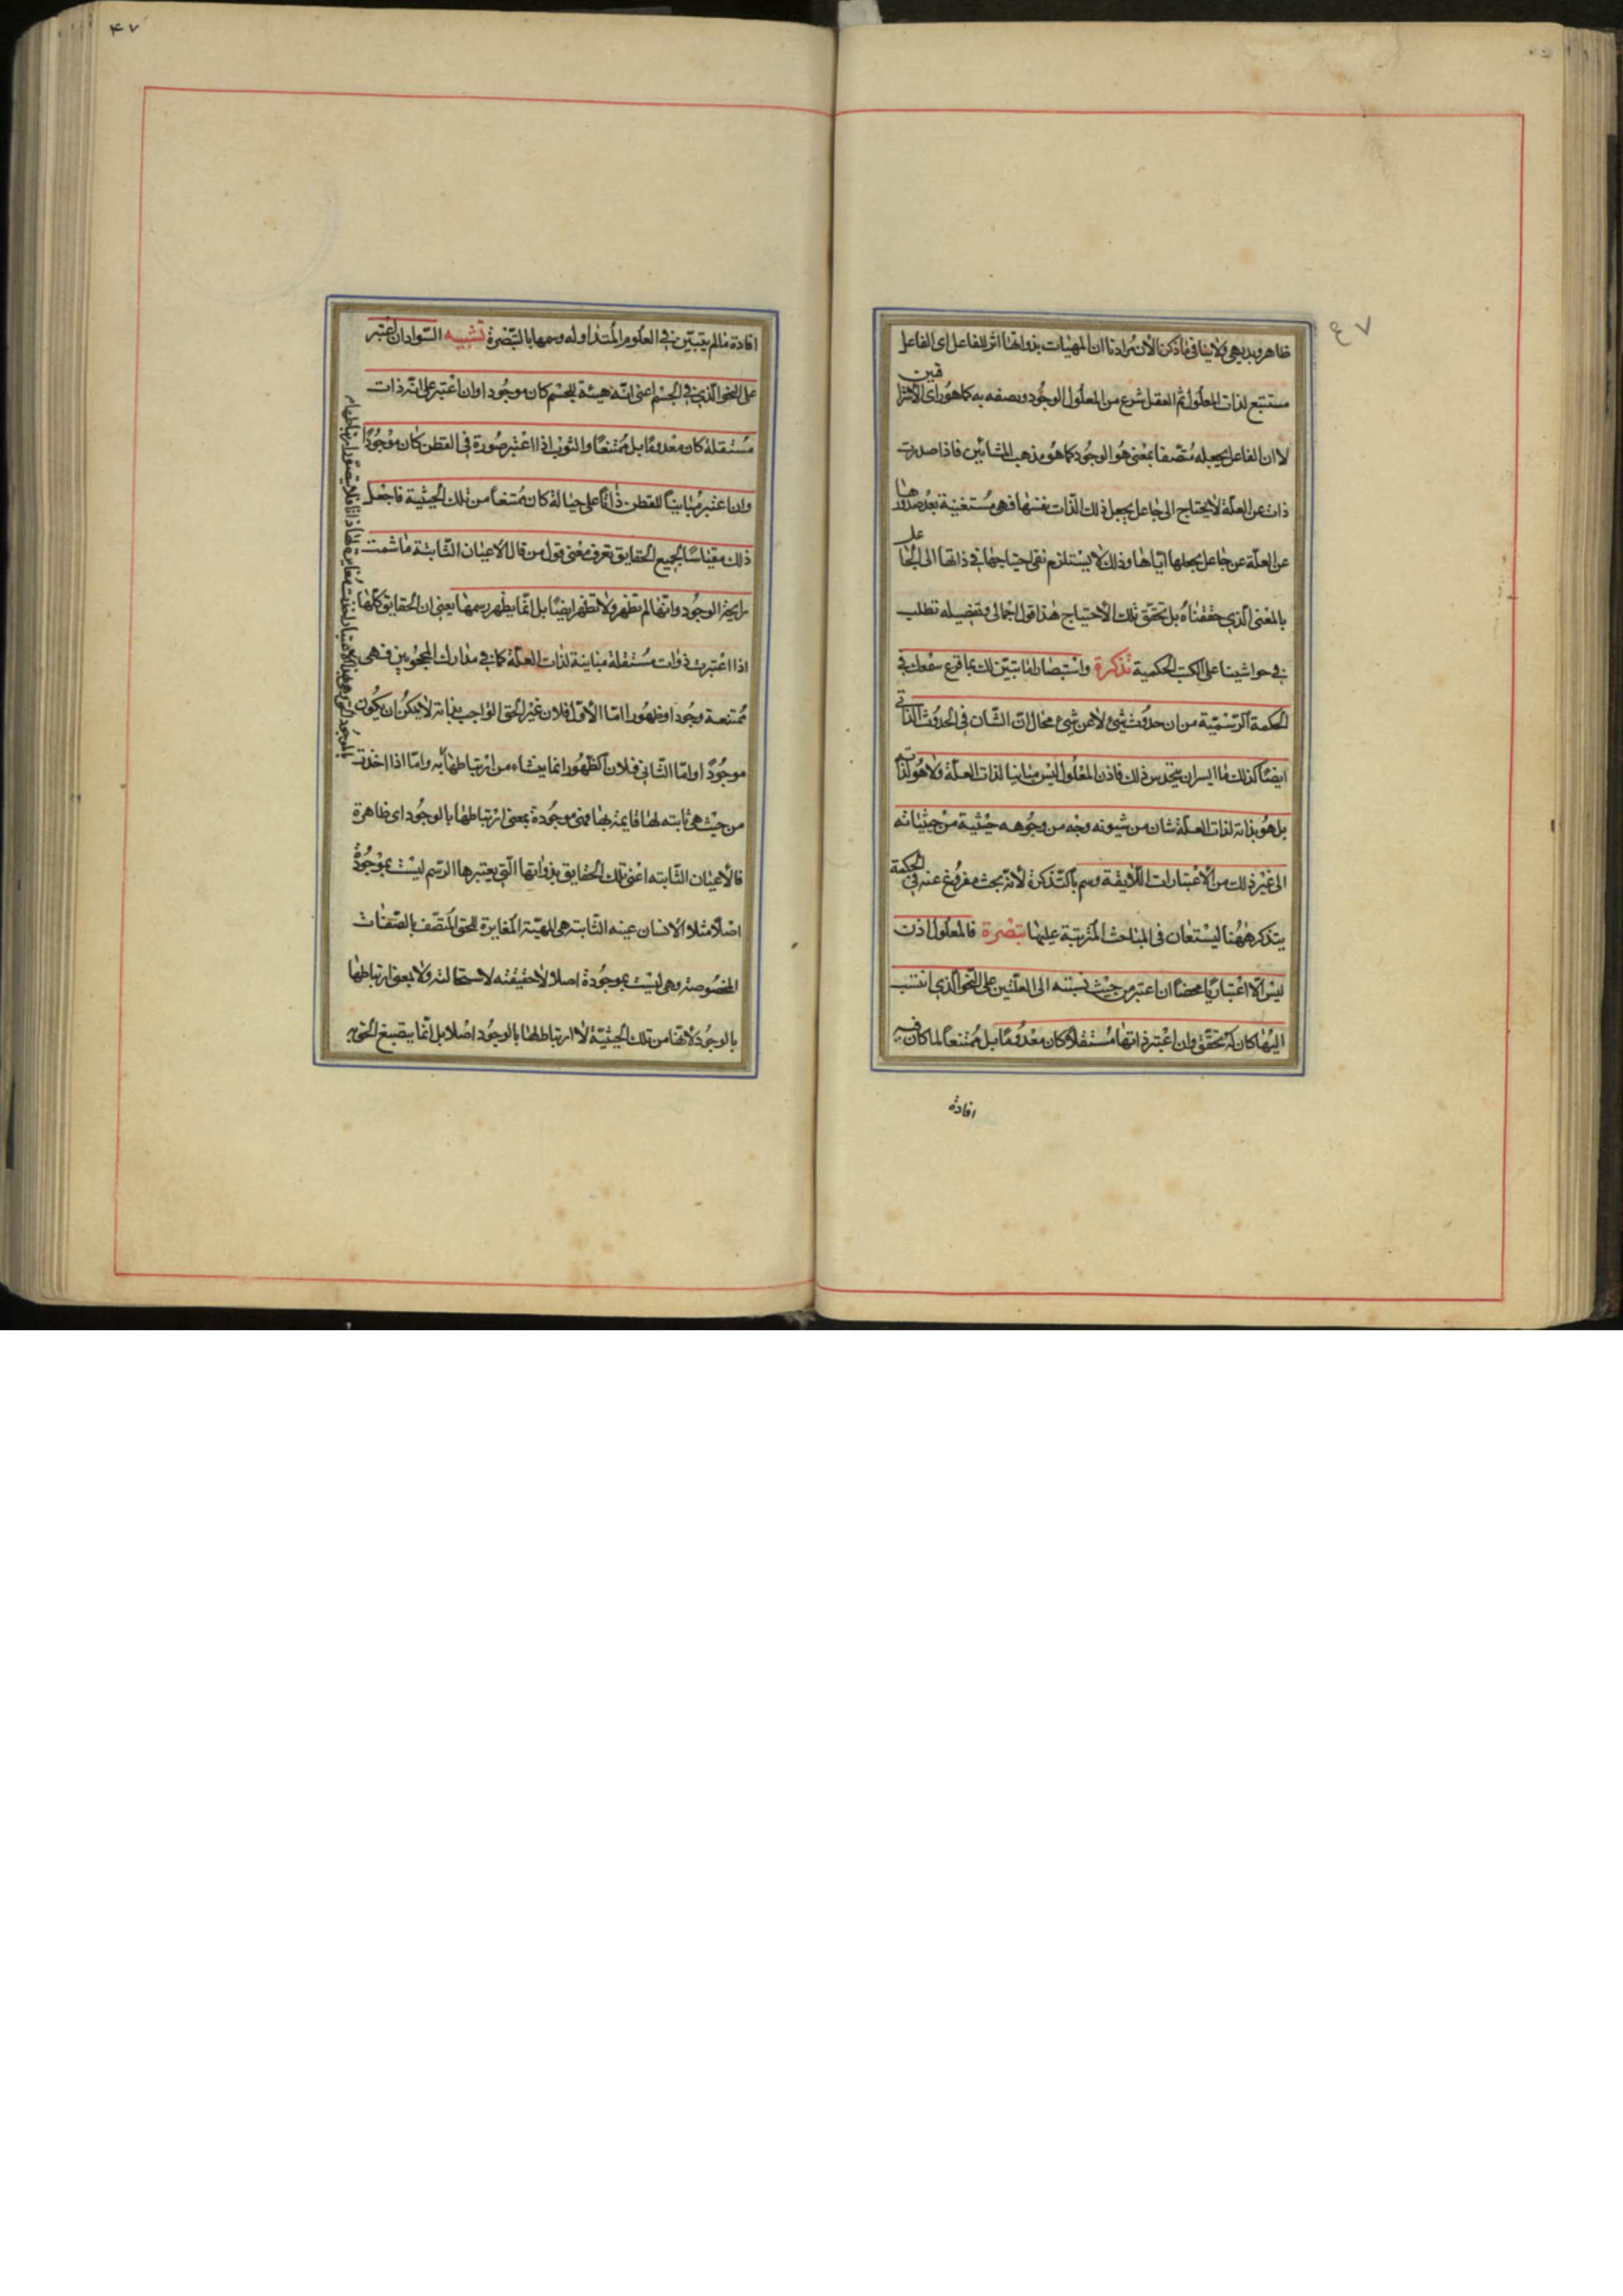 ظاهر وبديهى ولا ينافى ما ذكرنا لأن مرادنا ان المهيات بذواتها اثر للفاعل اى الفاعل
مستتبع لذات المعلول ثم العقل شرع من المعلول الوجود ويصفه به كما هو راى الاشراقين
لا ان الفاعل يجعله متصفا بمعنى هو الوجود كما هو مذهب المشائين فاذا صدرت
ذات عن العلة لا يحتاج الى جاعل يجعل ذلك الذات نفسها فهى مستغنية بعد صدورها
عن العلة عن جاعل يجعلها اياها وذلك لا يستلزم نفى احتياجها فى ذاتها الى الجاعل
بالمعنى الذى حققناه بل تحقق ذلك الاحتياج هذا قول اجمالى وتفصيله تطلب
فى حواشينا على الكتب الحكمية تذكرة واستبصار اما تبين لك بما قرع سمعك فى
الحكمة الرسمية من ان حدوث شئ لا عن شئ محال ان الشان فى الحدوث الذاتى
ايضا كذلك فما ايسر ان تتحدس من ذلك فاذن المعلول ليس مباينا لذات العلة ولا هو لذاته
بل هو بذاته لذات العلة شان من شيونه وجه من وجوهه حيثية من حيثياته
الى غير ذلك من الاعتبارات اللايقة وسم بالتذكرة لانه بحث مفروغ عنه فى الحكمة
يتذكر ههنا ليستعان فى المباحث المترتبة عليها تبصرة فالمعلول اذن
ليس الا اعتباريا محضا ان اعتبر من حيث نسبته الى العلتين على النحو الذى انتسب
اليها كان له تحقق وان اعتبر ذاتها مستقلا كان معدوما بل ممتنعا لما كان فيه
افادة
٤٧
۴۷
افادة مالم يتبين فى العلوم المتداوله وسمها بالتبصرة تشبيه السواد ان اعتبر
على النحو الذى فى الجسم اعنى انه هيئة للجسم كان موجودا وان اعتبر على انه ذات
مستقلة كان معدوما بل ممتنعا والثوب اذا اعتبر صورة فى القطن كان موجودا
وان اعتبر مباينا للقطن ذاتا على حيالة كان ممتنعا من تلك الحيثية فاجعل
ذلك مقياسا لجميع الحقايق تعرف معنى قول من قال الاعيان الثابتة ما شمت
رايحة الوجود وانها لم تظهر ولا تظهر ايضا بل انما يظهر رسمها يعنى ان الحقايق كلها
اذا اعتبرت ذوات مستقلة مباينة لذات العلة كما فى مدارك المحجوبين فهى
ممتنعة وجودا وظهورا اما الاول فلان غير الحق الواجب بذاته لا يمكن ان يكون
موجودا واما الثانى فلان الظهور انما ينشاء من ارتباطها به واما اذا اخذت
من حيث هى ثابته لها قايمة بها فهى موجودة بمعنى ارتباطها بالوجود اى ظاهرة
فالاعيان الثابته اعنى تلك الحقايق بذواتها التى يعتبرها الرسم ليست بموجودة
اصلا مثلا الانسان عينه الثابته هى المهية المغايرة للحق المتصف بالصفات
المخصوصة وهى ليست بموجودة اصلا لا حقيقته لاستحالته ولا بمعنى ارتباطها
بالوجود لانها من تلك الحيثية لا ارتباط لها بالوجود اصلا بل انما ينصبغ الحق به